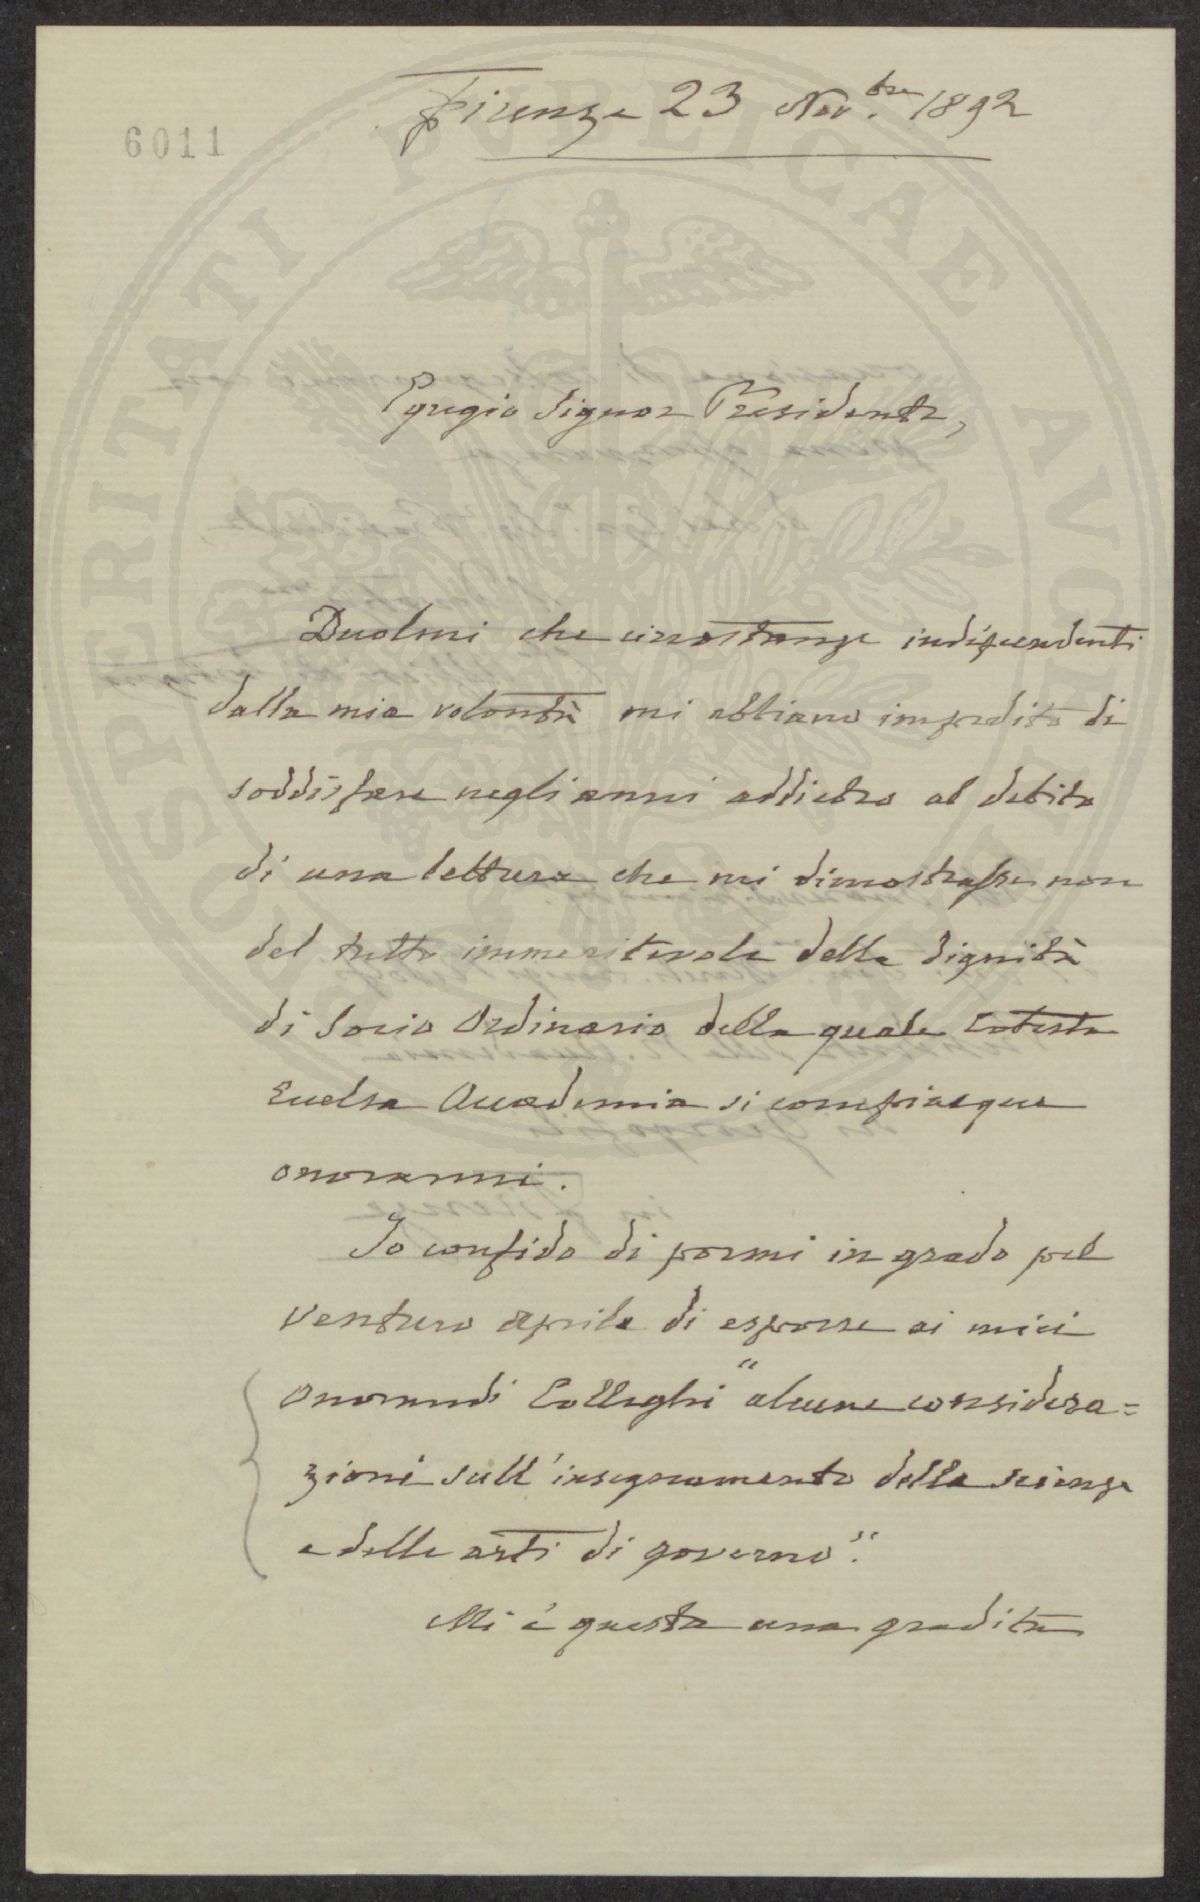 Firenze 23 Nov.bre 1892
6011
Egregio Signor Presidente,
Duolmi che circostanze indipendenti
dalla mia volontà mi abbiano impedito di
soddisfare negli anni addietro al debito
di una lettura che mi dimostrasse non
del tutto immeritevole della dignità
di Socio Ordinario della quale Cotesta
Eccelsa Accademia si compiacque
onorarmi.
Io confido di pormi in grado pel
venturo aprile di esporre ai miei
Onorandi Colleghi "alcune considera=
zioni sull'insegnamento delle scienze
e delle arti di governo".
Mi è questa una gradita